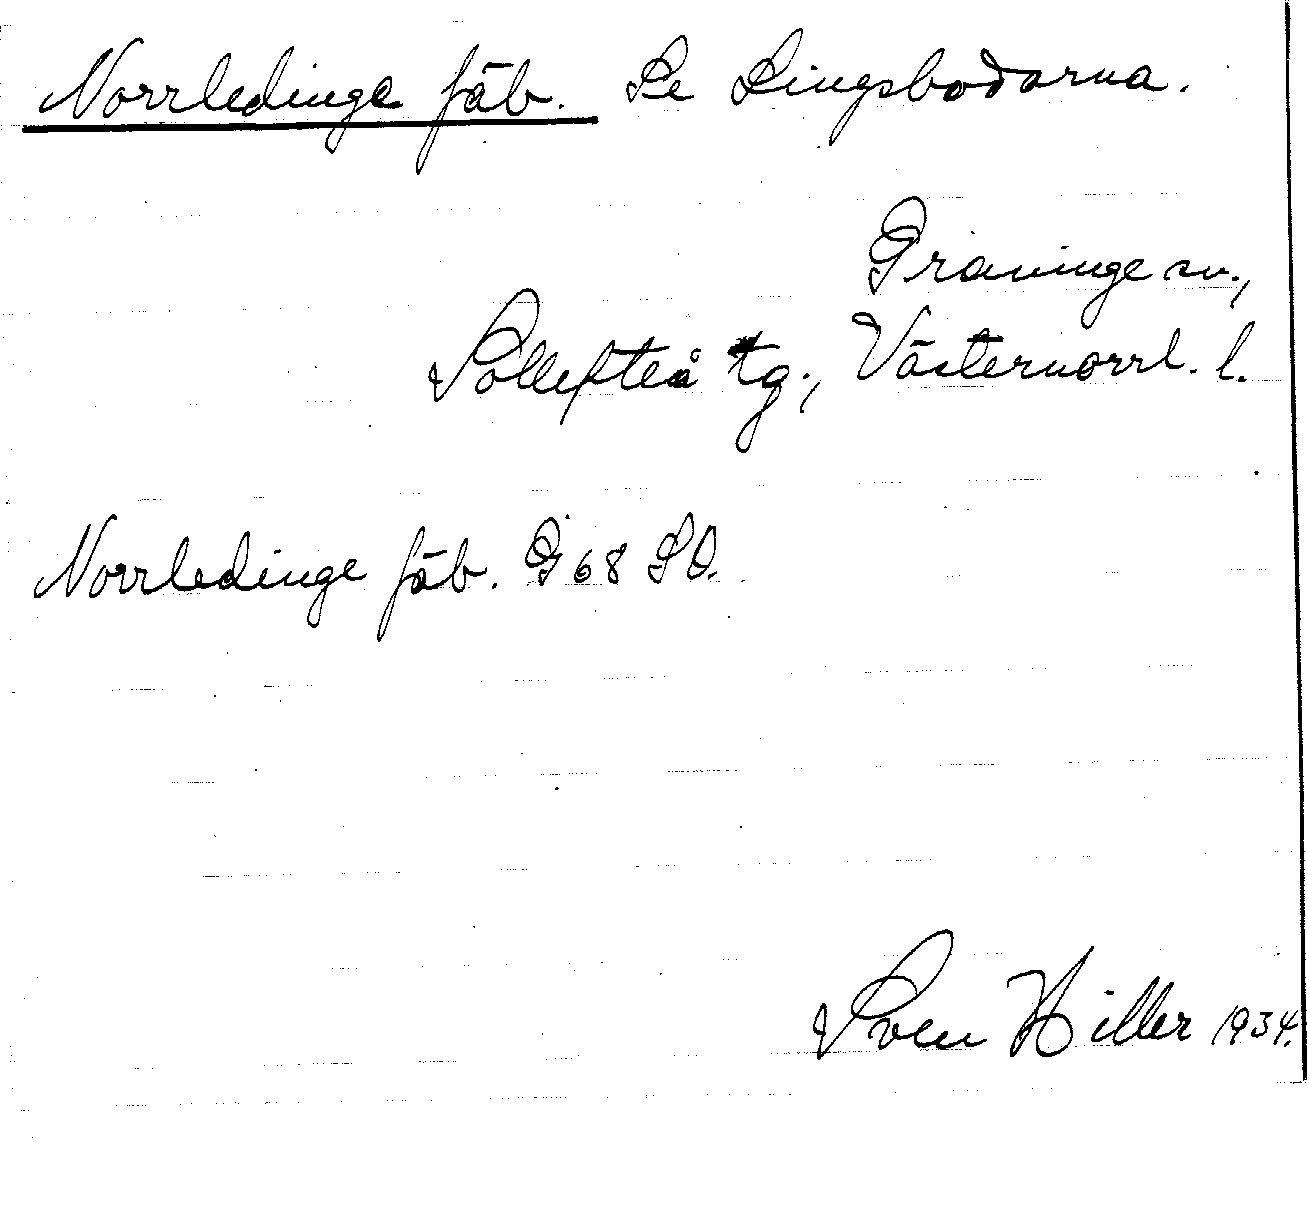 Norrledinge fäb. Se Lingsbodarna.
Graninge sn.,
Sollefteå tg., Västernorrl. l.
Norrledinge fäb. G 68 SO.
Sven Hiller 1934.